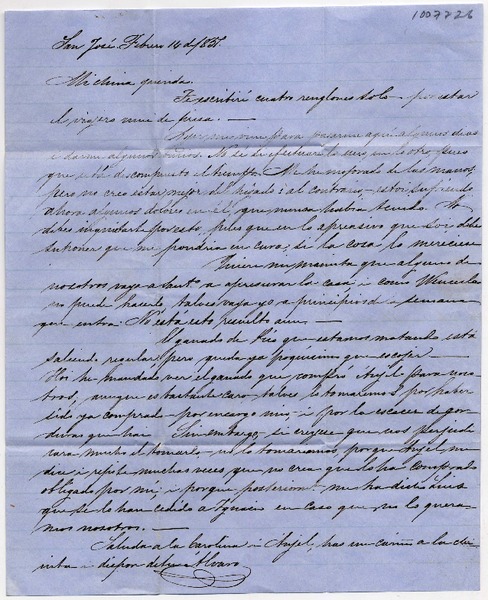 1007726
San José, Febrero 14 d/85
Mi china querida.
Te escribiré cuatro renglones solo por estar
el viajero mui de priesa. —
para pasarme aqui algunos dias
i darme algunos baños. No sé si efectuaré lo uno i lo otro, pues
que está descompuesto el tiempo. Me he mejorado de las manos,
pero no creo estar mejor del hígado: al contrario, estoi sufriendo
ahora algunos dolores en él, que nunca habia tenido. No
debes inquietarte por esto, pues que en lo aprensivo que soi debes
suponer que me pondria en cura, si la cosa lo mereciera
Quiere mi mamita que alguno de
nosotros vaya a Sant.o a apresurar la casa, i como Wenceslao
no puede hacerlo talvez vaya yo a principios de la semana
que entra. No está esto resuelto aun. —
El ganado de Rio que estamos matando está
saliendo regular, pero queda ya poquísimo que escojer. —
Hoi he mandado ver el ganado que compró Anjel para noso-
tros, aunque es bastante caro, talvez lo tomaremos por haber
sido ya comprado por encargo mio, i por la escasez de gor-
duras que hai. Sin embargo, si creyese que nos perjudi-
cara mucho el tomarlo no lo tomariamos, porque Anjel me
dice i repite muchas veces que no crea que lo ha comprado
obligado por mí, i porque posterior.te me ha dicho
que se lo han cedido a Ignacio en caso que no lo quera-
mos nosotros. —
Saluda a la Carolina i Anjel, haz un cariño a la chi-
nita i dispon de tu Alvaro